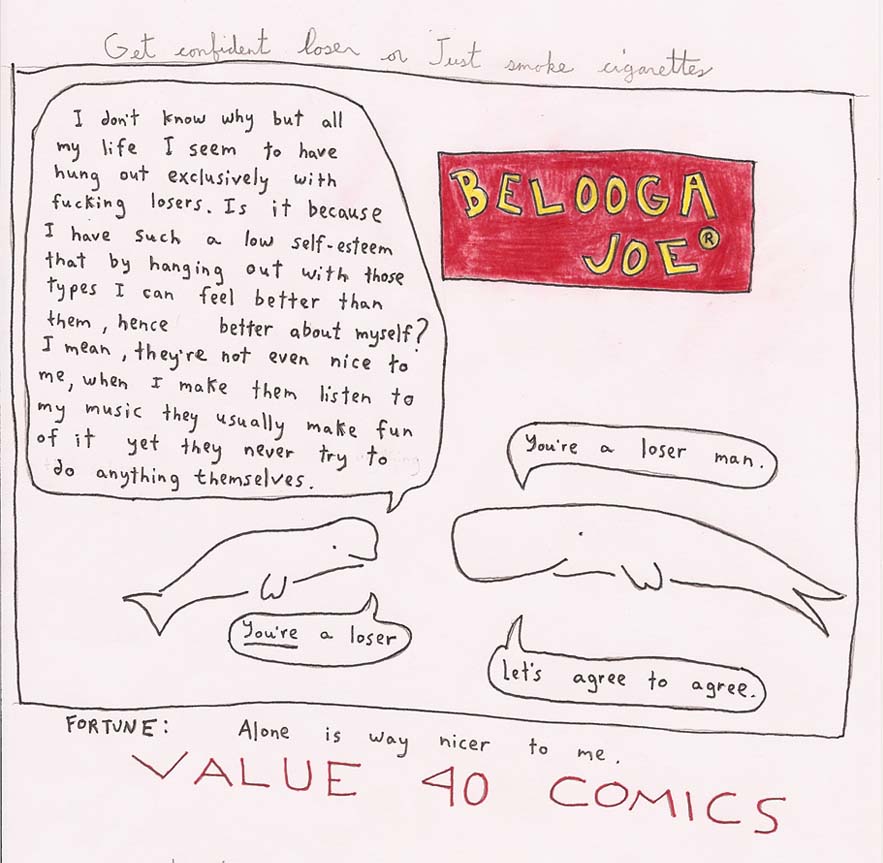 Get confident loser or Just smoke cigarettes
I don't know why but all
my life I seem to have
hung out exclusively with
fucking losers. Is it because
I have such a low self-esteem
that by hanging out with those
types I can feel better than
them, hence better about myself?
I mean, they're not even nice to
me, when I make them listen to
my music they usually make fun
of it yet they never try to
do anything themselves.
BELOOGA
JOE®
You're a loser man.
You're a loser
Let's agree to agree.
FORTUNE: Alone is way nicer to me.
VALUE 40 COMICS